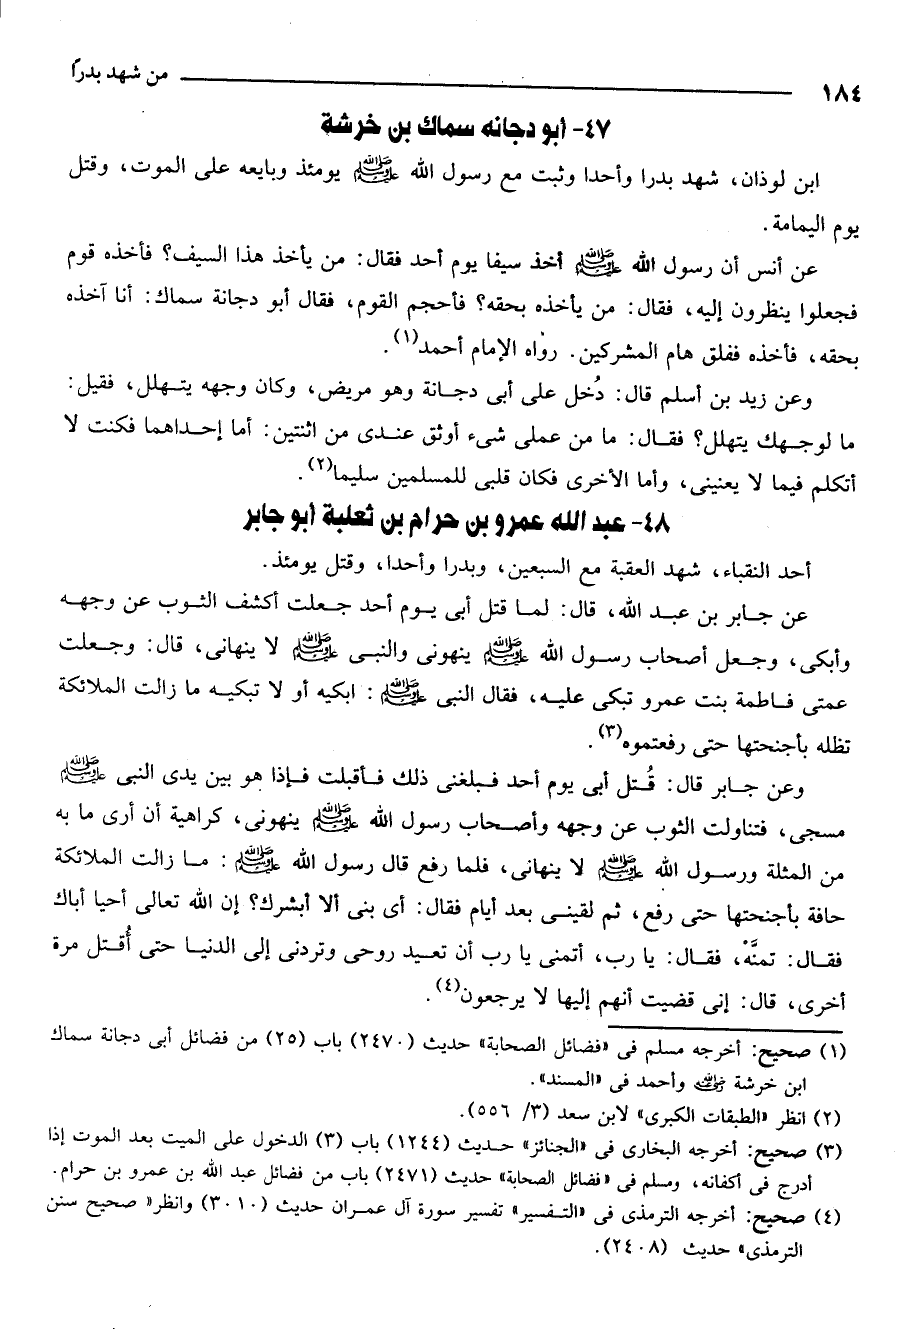 ١٨٤ من شهد بدرًا
٤٧- أبو دجانه سماك بن خرشة
ابن لوذان، شهد بدرا وأحدا وثبت مع رسول الله ﷺ يومئذ وبايعه على الموت، وقتل
يوم اليمامة.
عن أنس أن رسول الله ﷺ أخذ سيفا يوم أحد فقال: من يأخذ هذا السيف؟ فأخذه قوم
فجعلوا ينظرون إليه، فقال: من يأخذه بحقه؟ فأحجم القوم، فقال أبو دجانة سماك: أنا آخذه
بحقه، فأخذه ففلق هام المشركين. رواه الإمام أحمد(١).
وعن زيد بن أسلم قال: دُخل على أبى دجـانة وهو مريض، وكان وجهه يتـهلل، فقيل:
ما لوجـهك يتهلل؟ فقـال: ما من عملى شىء أوثق عنـدى من اثنتين: أما إحـداهما فكنت لا
أتكلم فيما لا يعنينى، وأما الأخرى فكان قلبى للمسلمين سليما(٢).
٤٨- عبد الله عمرو بن حرام بن ثعلبة أبو جابر
أحد النقباء، شهد العقبة مع السبعين، وبدرا وأحدا، وقتل يومئذ.
عن جـابر بن عبـد الله، قال: لمـا قتل أبى يـوم أحد جـعلت أكشف الثـوب عن وجهـه
وأبكى، وجعل أصحاب رسـول الله ﷺ ينهونى والنبـى ﷺ لا ينهانى، قال: وجـعلت
عمتى فـاطمة بنت عمرو تبكى عليـه، فقال النبى ﷺ: ابكيه أو لا تبكيـه ما زالت الملائكة
تظله بأجنحتها حتى رفعتموه(٣).
وعن جـابر قال: قُـتل أبى يوم أحد فـبلغنى ذلك فـأقبلت فـإذا هو بين يدى النبى ﷺ
مسجى، فتناولت الثوب عن وجهه وأصـحاب رسول الله ﷺ ينهونى، كراهية أن أرى ما به
من المثلة ورسـول الله ﷺ لا ينهانى، فلما رفع قال رسول الله ﷺ: مـا زالت الملائكة
حافة بأجنحتها حتى رفع، ثم لقينـى بعد أيام فقال: أى بنى ألا أبشرك؟ إن الله تعالى أحيا أباك
فقـال: تمنَّهْ، فقـال: يا رب، أتمنى يا رب أن تعـيد روحى وتردنى إلى الدنيـا حتى أُقـتل مرة
أخرى، قال: إنى قضيت أنهم إليها لا يرجعون(٤).
(١) صحيح: أخرجه مسلم فى «فضائل الصحابة» حديث (٢٤٧٠) باب (٢٥) من فضائل أبى دجانة سماك
ابن خرشة رضي الله عنه وأحمد فى «المسند».
(٢) انظر «الطبقات الكبرى» لابن سعد (٣/ ٥٥٦).
(٣) صحيح: أخرجه البخارى فى «الجنائز» حـديث (١٢٤٤) باب (٣) الدخول على الميت بعد الموت إذا
أدرج فى أكفانه، ومسلم فى «فضائل الصحابة» حديث (٢٤٧١) باب من فضائل عبد الله بن عمرو بن حرام.
(٤) صحيح: أخرجه الترمذى فى «التـفسير» تفسير سورة آل عمـران حديث (٣٠١٠) وانظر« صحيح سنن
الترمذى» حديث (٢٤٠٨).